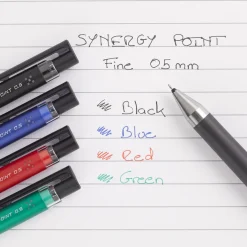 SYNERGY POINT
Fine 0.5mm
Black
Blue
Red
Green
POINT 0.5
POINT 0.5
POINT 0.5
POINT 0.5